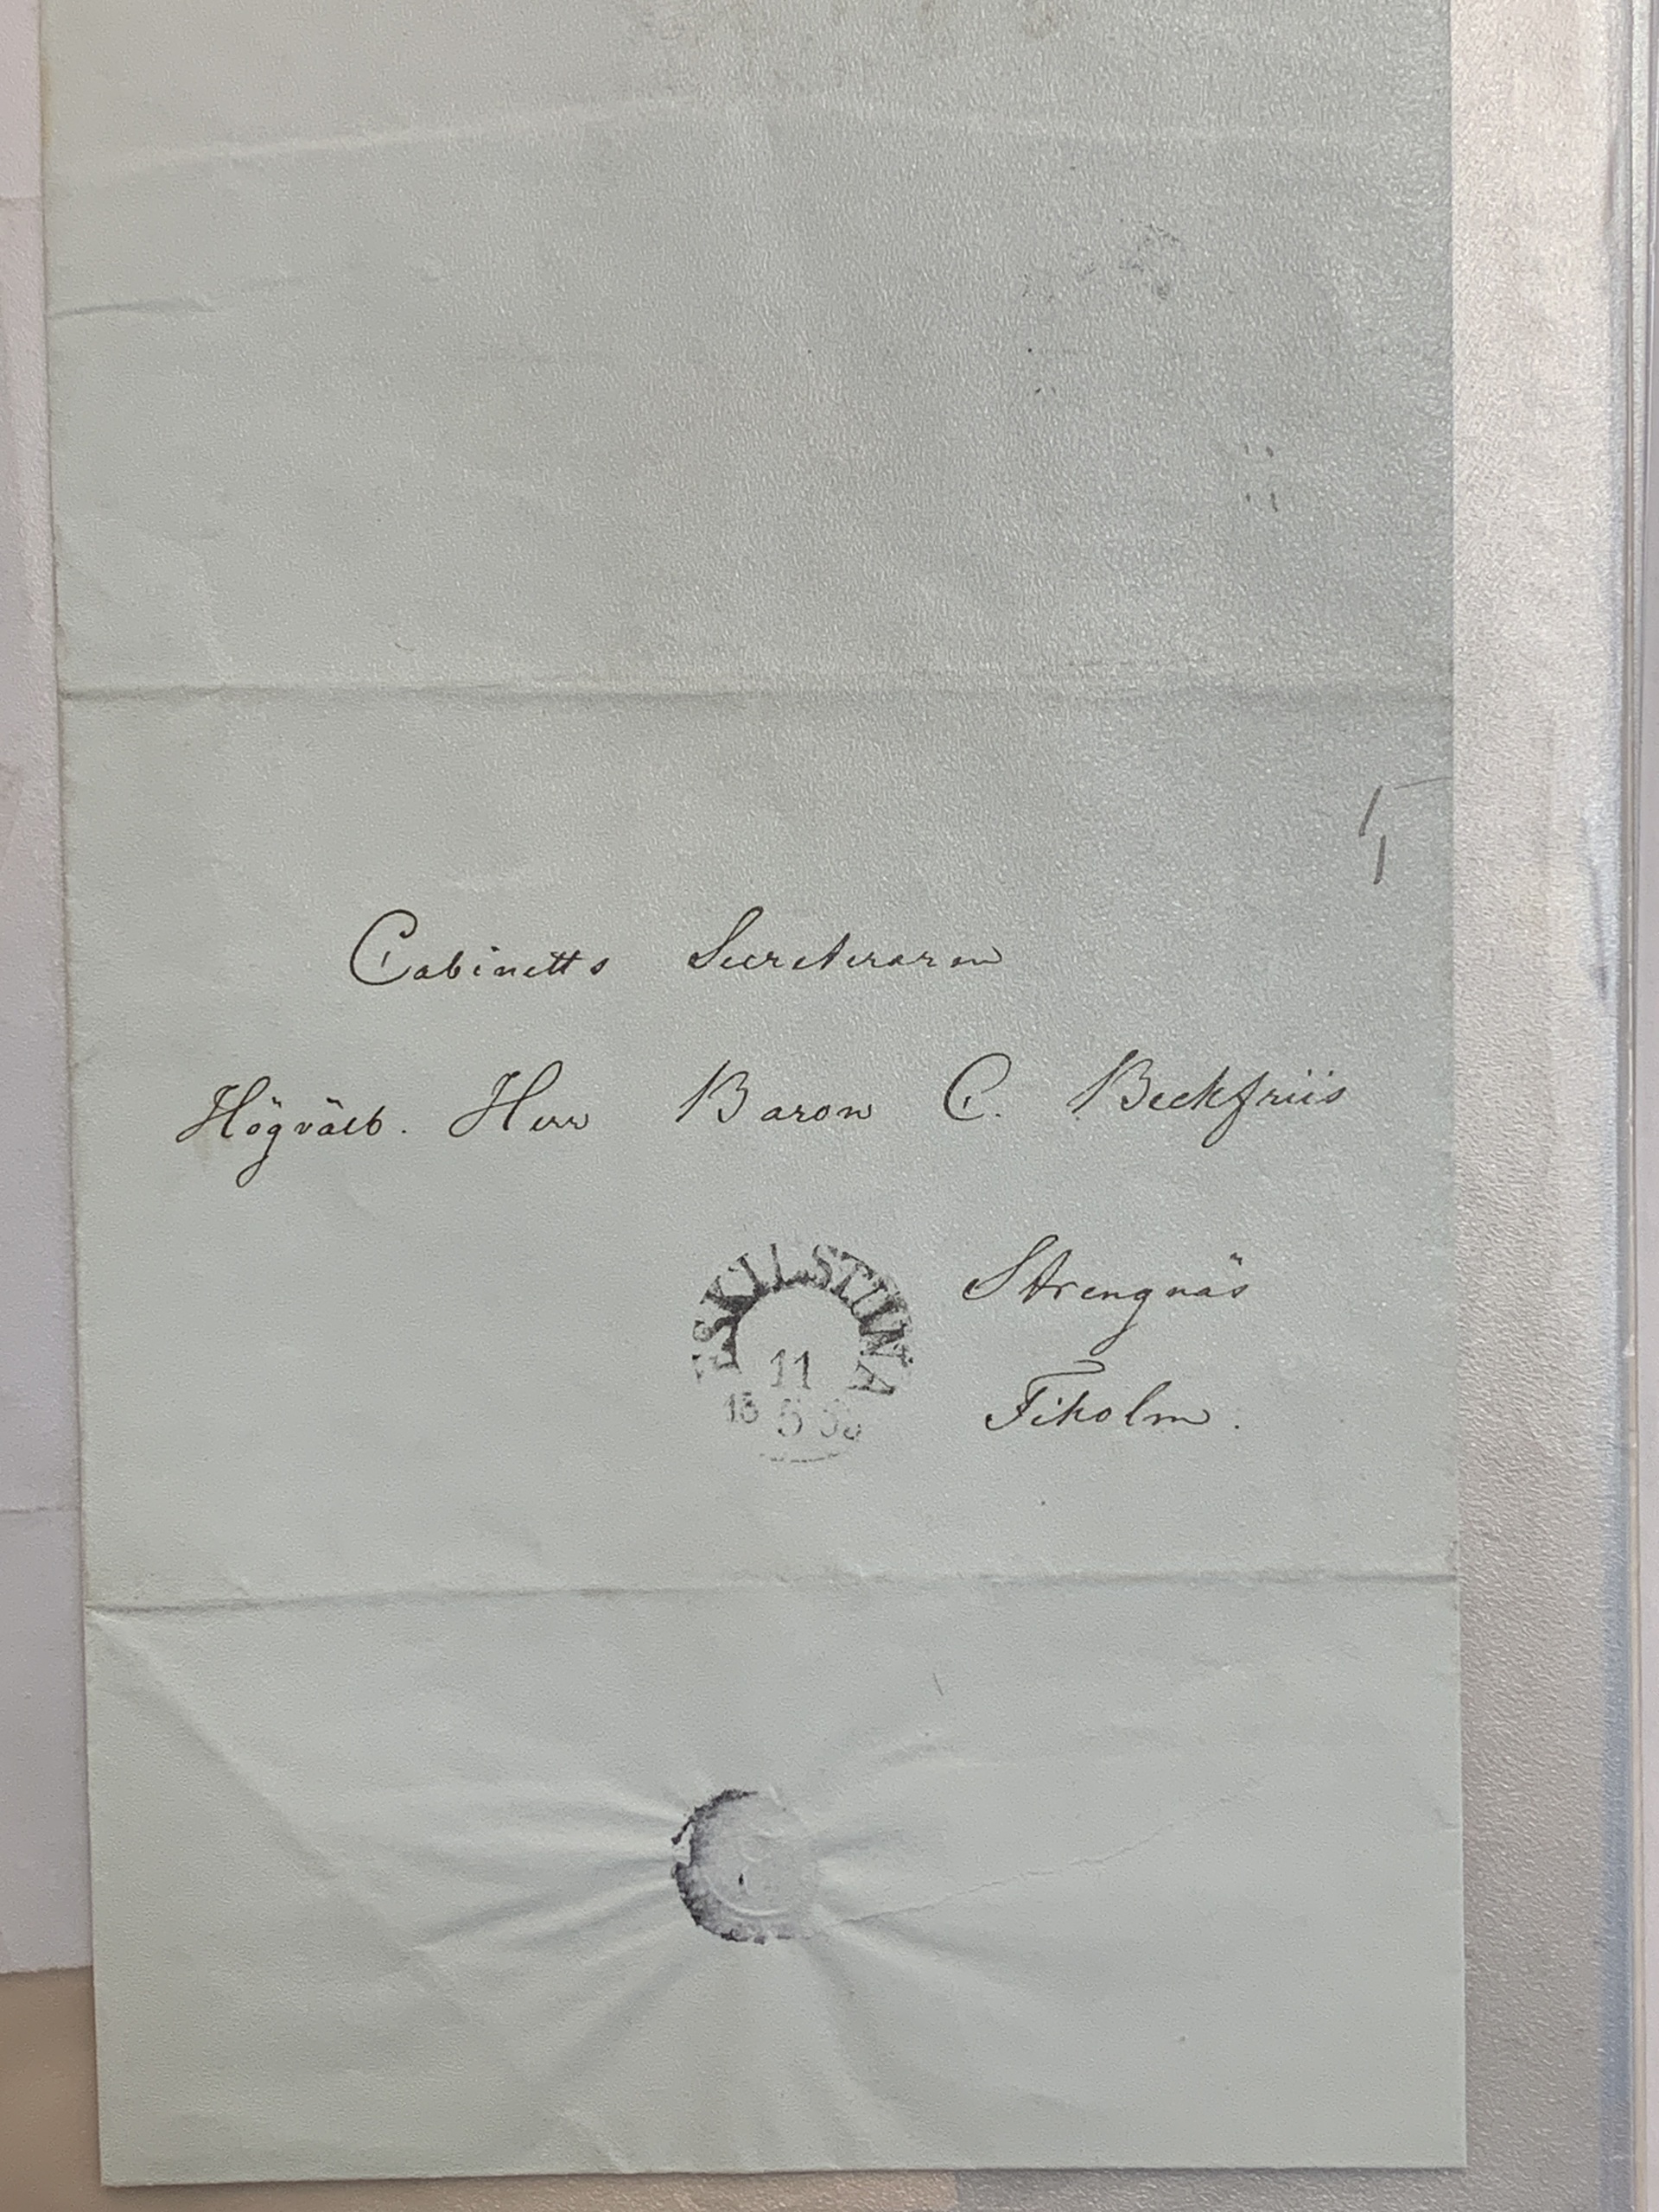 Cabinetts Secreteraren
Högvälb. Herr Baron C. Beckfriis
ESKILSTUNA
11
5
Strengnäs
Fiholm.